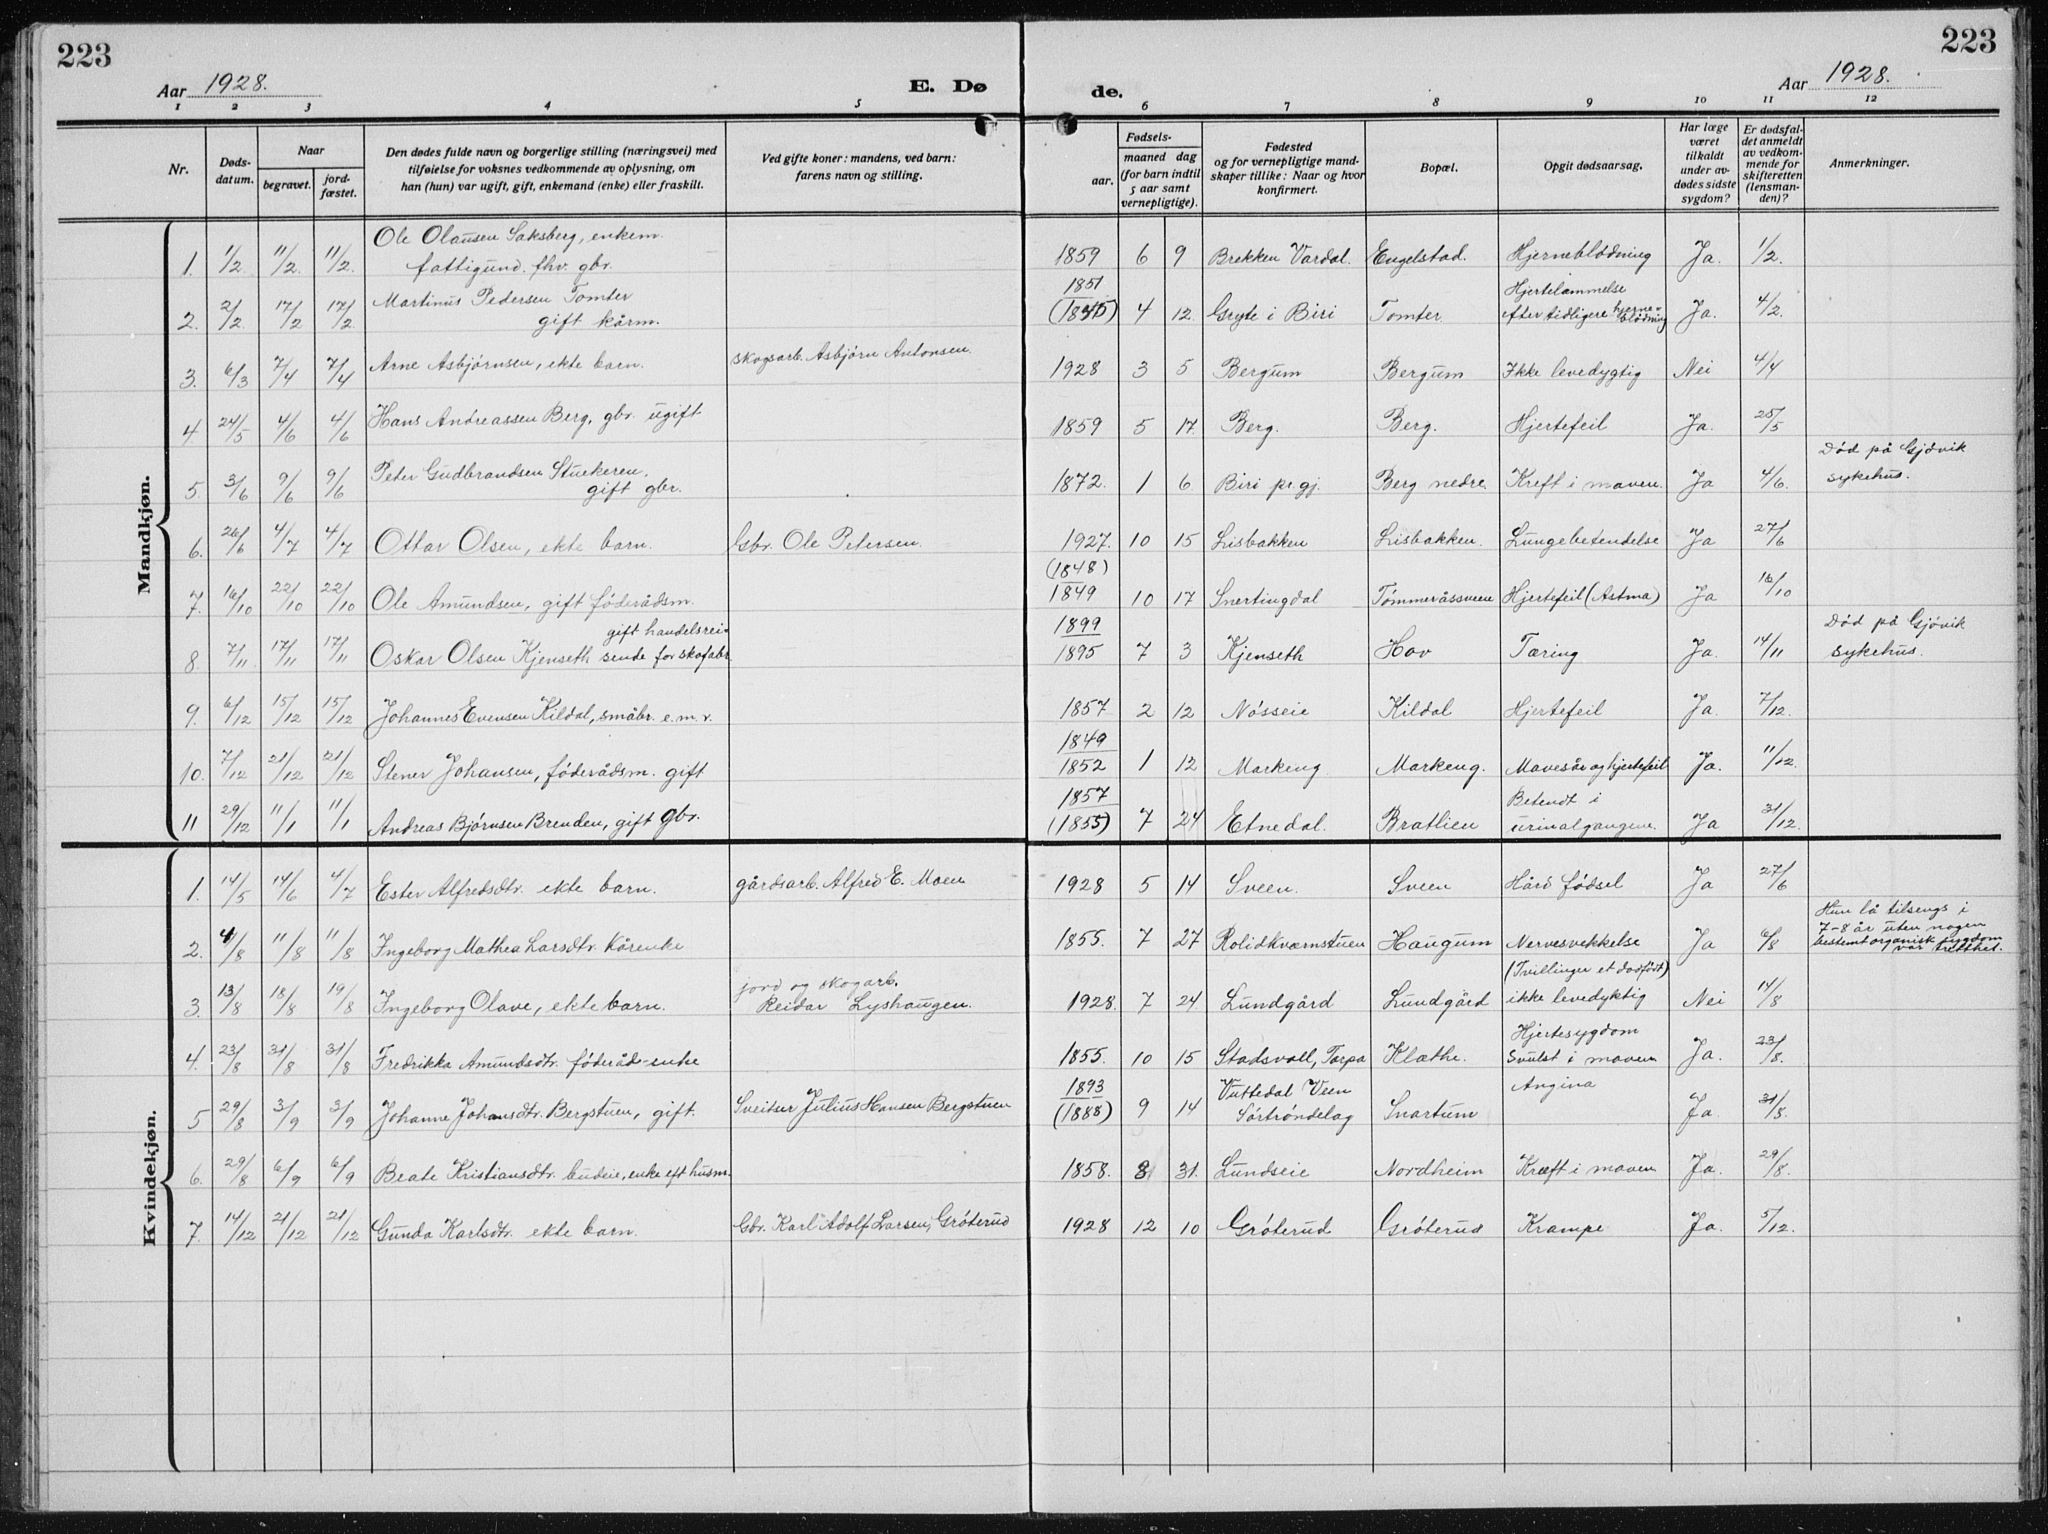 223
223
Aar 1928.
E. Døde.
Aar 1928.
1 2 3 4 5 6 7 8 9 10 11 12
Nr.
Døds-
datum.
Naar
begravet.
jord-
fæstet.
Den dødes fulde navn og borgerlige stilling (næringsvei) med
tilføielse for voksnes vedkommende av oplysning, om
han (hun) var ugift, gift, enkemand (enke) eller fraskilt.
Ved gifte koner: mandens, ved barn:
farens navn og stilling.
Fødsels-
aar.
maaned dag
(for barn indtil
5 aar samt
vernepligtige).
Fødested
og for vernepligtige mand-
skaper tillike: Naar og hvor
konfirmert.
Bopæl.
Opgit dødsaarsag.
Har læge
været
tilkaldt
under av-
dødes sidste
sygdom?
Er dødsfal-
det anmeldt
av vedkom-
mende for
skifteretten
(lensman-
den)?
Anmerkninger.
Mandkjøn.
1. 1/2 11/2. 11/2. Ole Olausen Saksberg, enkem. fattigund. fhv. gbr. 1859 6 9 Brekken Vardal. Engelstad. Hjerneblødning Ja. 1/2.
2. 2/2 17/2 17/2 Martinus Pedersen Tomter gift kårm. 1851 (1845) 4 12. Gryte i Biri Tomter Hjertelammelse efter tidligere hjerne-blødning Ja. 4/2.
3. 6/3 7/4 7/4 Arne Asbjørnsen, ekte barn. skogsarb. Asbjørn Antonsen. 1928 3 5 Bergum Bergum Ikke levedygtig Nei 4/4
4 24/5 4/6 4/6 Hans Andreassen Berg, gbr. ugift 1859 5 17. Berg. Berg. Hjertefeil Ja. 25/5
5. 3/6 9/6 9/6 Peter Gudbrandsen Stuekeren. gift gbr. 1872. 1 6. Biri pr.gj. Berg nedre. Kreft i maven. Ja 4/6. Død på Gjøvik sykehus.
6. 26/6 4/7 4/7 Ottar Olsen, ekte barn. Gbr. Ole Petersen. 1927. 10 15 Lisbakken Lisbakken. Lungebetendelse Ja 27/6
7. 16/10 22/10 22/10 Ole Amundsen, gift føderådsm. (1848) 1849 10 17 Snertingdal Tømmeråssveen Hjertefeil (Astma) Ja 16/10
8. 7/11 17/11 17/11 Oskar Olsen Kjenseth gift handelsrei-sende for skofabr. 1899 1895 7 3 Kjenseth Hov Tæring Ja. 14/11 Død på Gjøvik sykehus.
9. 6/12 15/12 15/12 Johannes Evensen Kildal, småbr. e.m.v. 1857 2 12 Nøsseie Kildal Hjertefeil Ja. 7/12.
10. 7/12 21/12 21/12 Stener Johansen, føderådsm. gift 1849 1852 1 12 Markeng Markeng. Mavesår og hjertefeil Ja. 11/12.
11 29/12 11/1 11/1 Andreas Bjørnsen Brenden, gift gbr. 1857 (1855) 7 24 Etnedal. Bratlien Betendt i urinalgangene. Ja 31/12.
Kvindekjøn.
1. 14/5 14/6 4/7 Ester Alfredsdtr. ekte barn. gårdsarb. Alfred E. Moen 1928 5 14 Sveen. Sveen Hård fødsel Ja 27/6
2. 4/8 11/8 11/8 Ingeborg Mathea Larsdtr. kårenke 1855. 7 27 Rolidkværnstuen Haugum Nervesvekkelse Ja 6/8 Hun lå tilsengs i 7-8 år uten nogen bestemt organisk sygdom var trætthet.
3. 13/8 18/8 19/8 Ingeborg Olave, ekte barn. jord og skogarb. Reidar Lyshaugen. 1928. 7 24. Lundgård Lundgård (Tvillinger et dødfødt) ikke levedyktig Nei 14/8
4. 23/8 31/8 31/8 Fredrikka Amundsdtr. føderåd-enke 1855. 10 15 Stadsvoll, Torpa Klæthe. Hjertesygdom Svulst i maven Ja. 23/8.
5 29/8 3/9 3/9 Johanne Johansdtr. Bergstuen, gift. Sveitser Julius Hansen Bergstuen 1893 (1888) 9 14 Vuttedal Veen Sørtrøndelag Snartum Angina Ja. 31/8.
6. 29/8 6/9 6/9 Beate Kristiansdtr. budeie, enke eft husm. 1858. 8 31. Lundseie Nordheim Kræft i maven Ja. 29/8.
7. 14/12 21/12 21/12 Gunda Karlsdtr. ekte barn. Gbr. Karl Adolf Larsen, Grøterud 1928 12 10 Grøterud Grøterud Krampe Ja. 5/12.